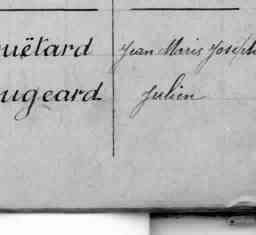 uëtard Jean Marie Joseph
ugeard Julien